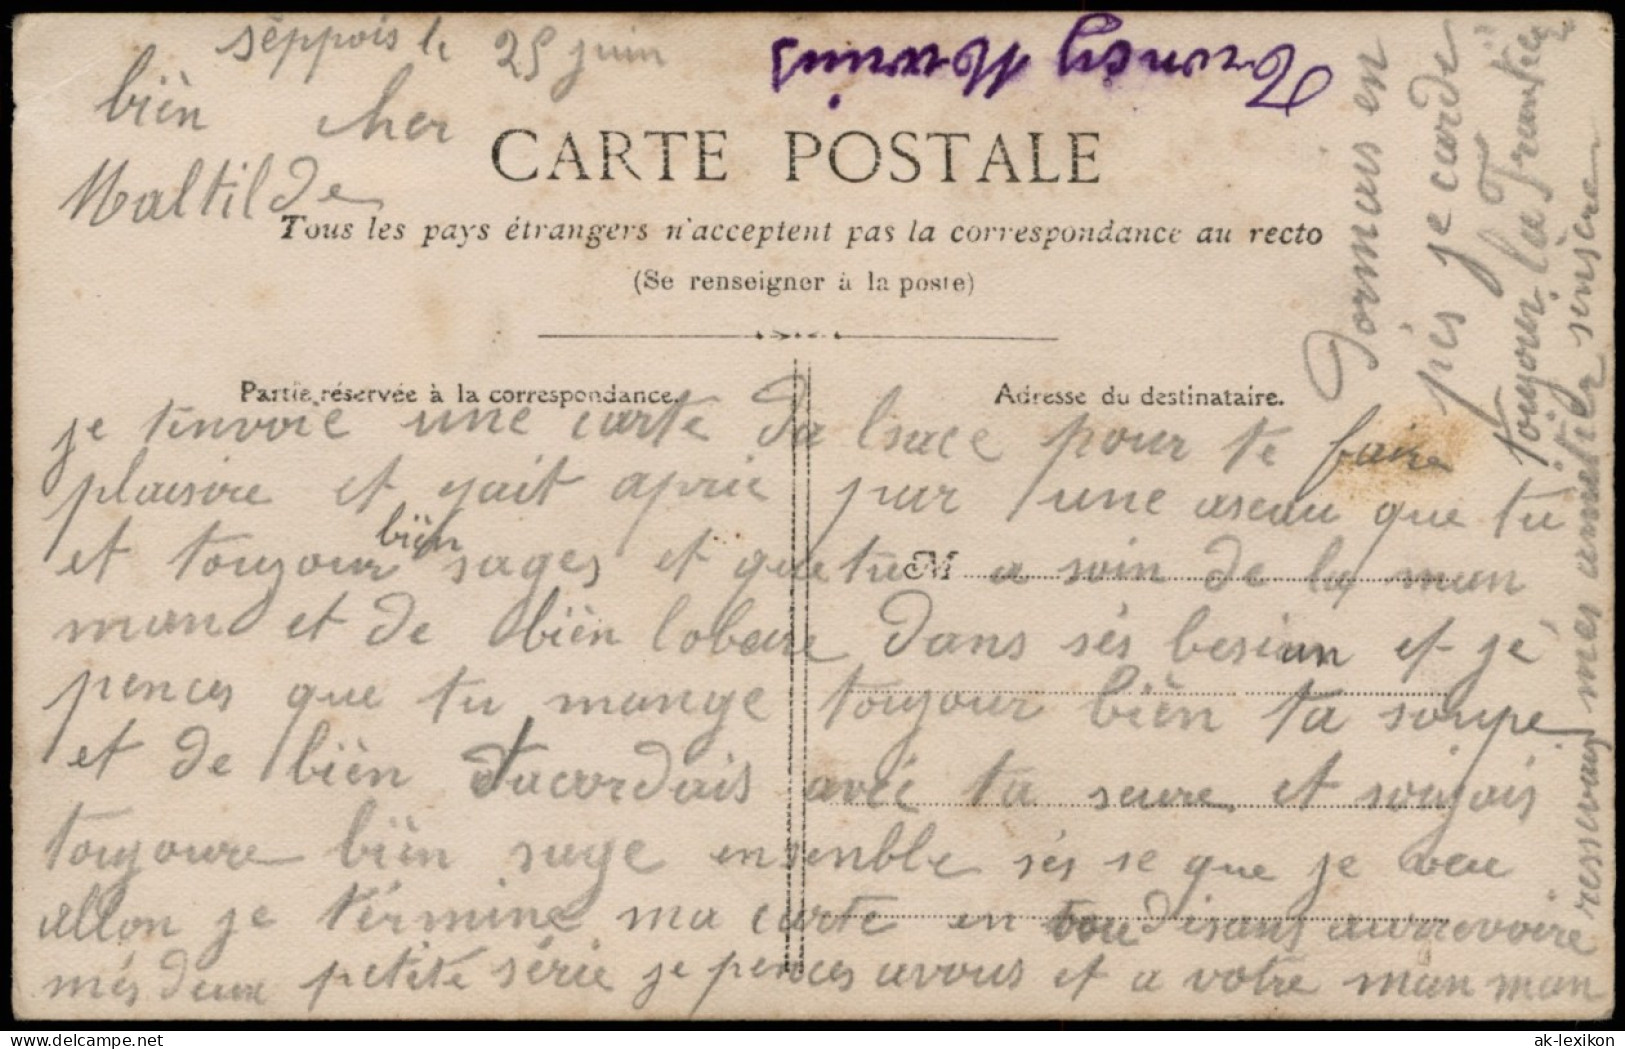 séppois le 25 juin
bièn cher
Maltilde
CARTE POSTALE
Tous les pays étrangers n'acceptent pas la correspondance au recto
(Se renseigner à la poste)
Partie réservée à la correspondance.
Adresse du destinataire.
M
je tenvoie une carte da lsace pour te faire
plaisire et par une que tu
et toujour bièn sages et que tu a soin de la man
man et de bièn lobeire dans sés besiun et je
pences que tu mange toujour bièn ta soupe
et de bièn tacordais avéc ta seure et soiyais
toujoure bièn sage ensenble sés se que je veu
allon je términe ma carte en vou disans aurrevoire
més deux petite série je pences avous et a votre man man
ressevay més amétiér sinsère
toujour la Frontié
pés je carde
Dormais en
Marius
ak-lexikon
© www.delcampe.net